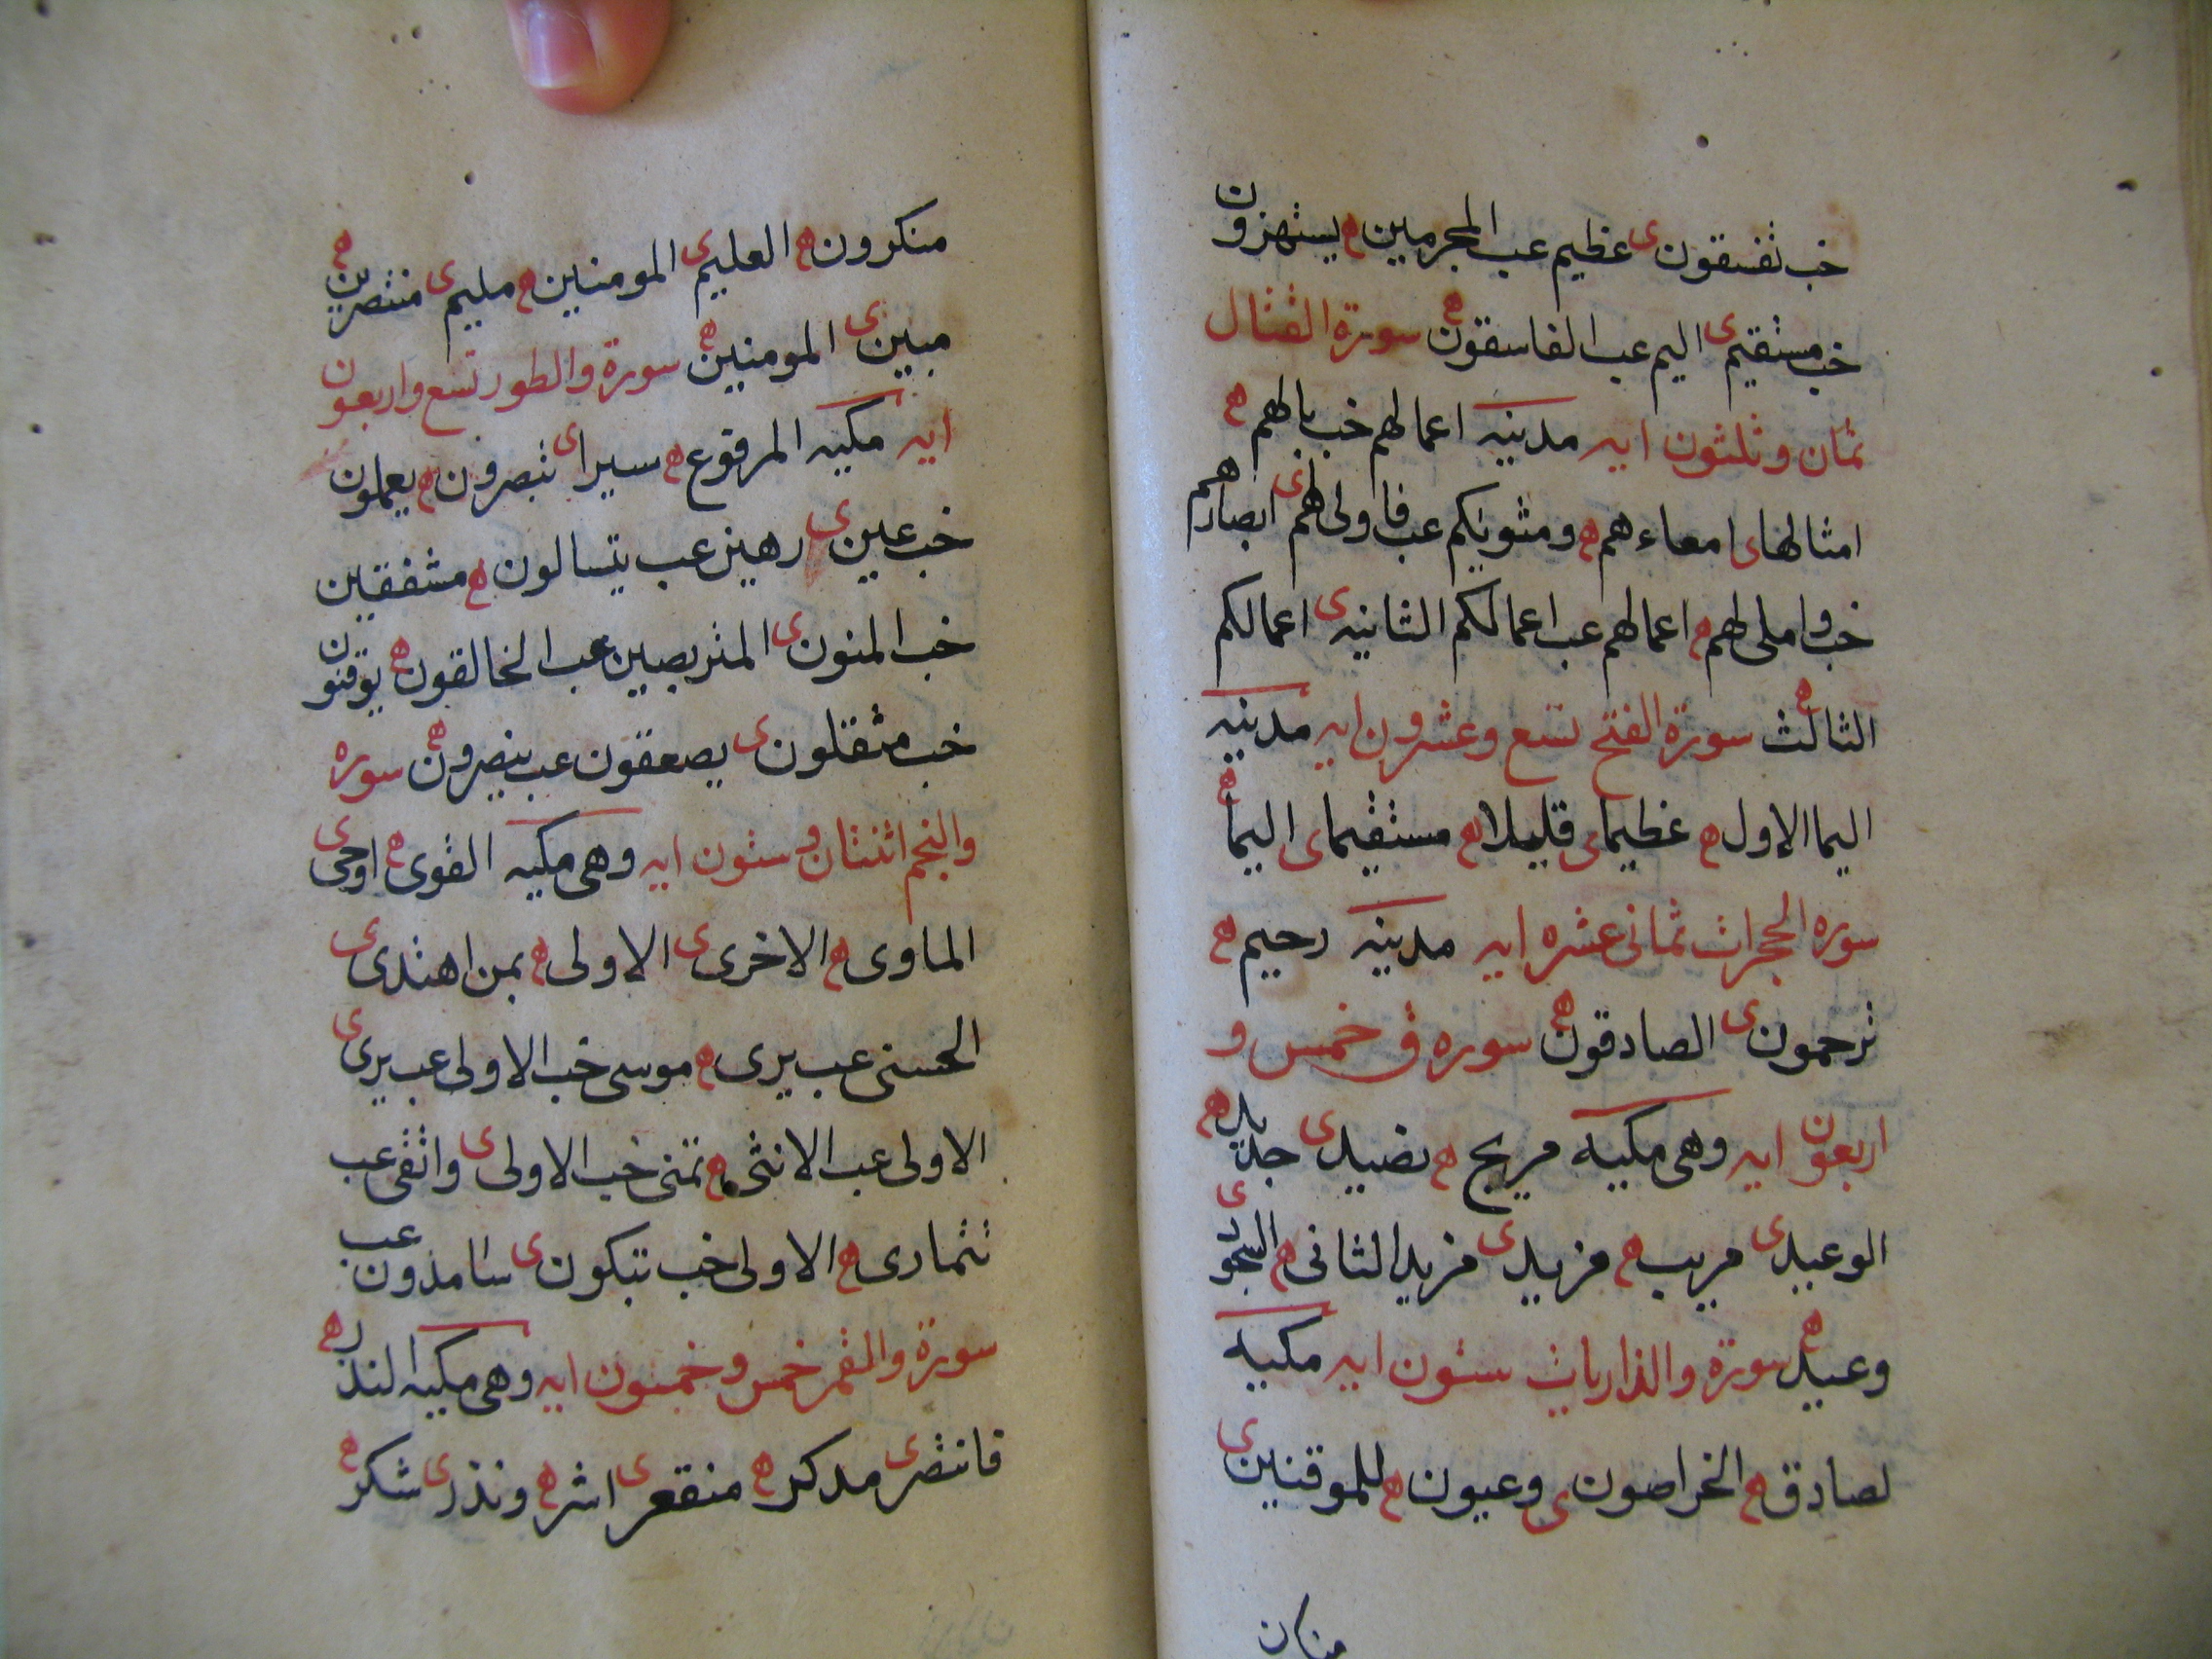 خب تفسقون ى عظيم عب المجرمين ه يستهزون
خب مستقيم ى اليم عب الفاسقون ه سورة القتال
ثمان وثلثون ايه مدينه اعمالهم خب بالهم ه
امثالها ى امعاءهم ه ومثويكم عب فاولى لهم ى ابصارهم
خب واملى لهم ه اعمالهم عب اعمالكم الثانيه ى اعمالكم
الثالث ه سورة الفتح تسع وعشرون ايه مدينه
اليما الاول ه عظيما ى قليلا ه مستقيما ى اليما ه
سوره الحجرات ثمانى عشره ايه مدينه رحيم ه
ترحمون ى الصادقون ه سوره ق خمس و
اربعون ايه وهى مكيه مريج ه نضيد ى جديد ه
الوعيد ى مريب ه مزيد ى مزيد الثانى ه السجود ى
وعيد ه سورة والذاريات ستون ايه مكيه
لصادق ه الخراصون ى وعيون ه للموقنين ى
منكرون ه العليم ى المومنين ه مليم ى منتصرين ه
مبين ى المومنين ه سورة والطور تسع واربعون
ايه مكيه المرفوع ه سيرا ى تبصرون ه يعملون
خب عين ى رهين عب يتسالون ه مشفقين
خب المنون ى المتربصين عب الخالقون ه يوقنون
خب مثقلون ى يصعقون عب ينصرون ه سوره
والنجم اثنتان وستون ايه وهى مكيه القوى ه اوحى ى
الماوى ه الاخرى ى الاولى ه بمن اهتدى ى
الحسنى عب يرى ه موسى خب الاولى عب يرى ى
الاولى عب الانثى ه تمنى خب الاولى ى واتقى عب
تتمارى ه الاولى خب تبكون ى سامدون عب
سورة والقمر خمس وخمسون ايه وهى مكيه النذر ه
فانتصر ى مدكر ه منقعر ى اشر ه ونذر ى شكر ه